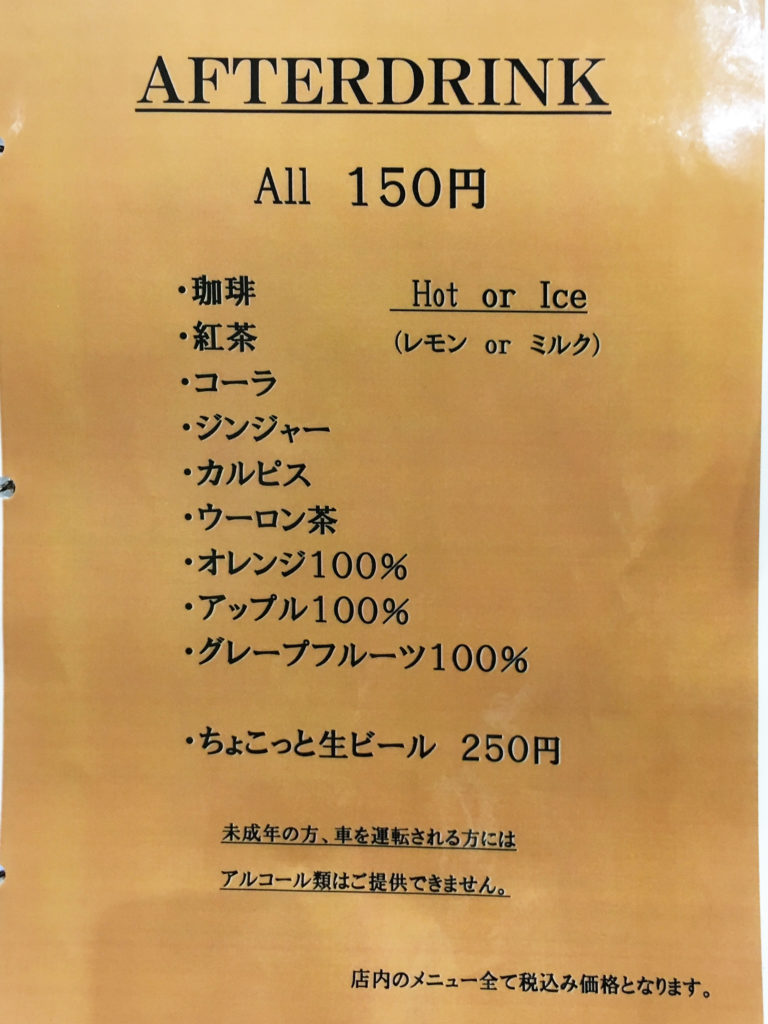 AFTERDRINK
All 150円
・珈琲 Hot or Ice
・紅茶 (レモン or ミルク)
・コーラ
・ジンジャー
・カルピス
・ウーロン茶
・オレンジ100%
・アップル100%
・グレープフルーツ100%
・ちょこっと生ビール 250円
未成年の方、車を運転される方には
アルコール類はご提供できません。
店内のメニュー全て税込み価格となります。